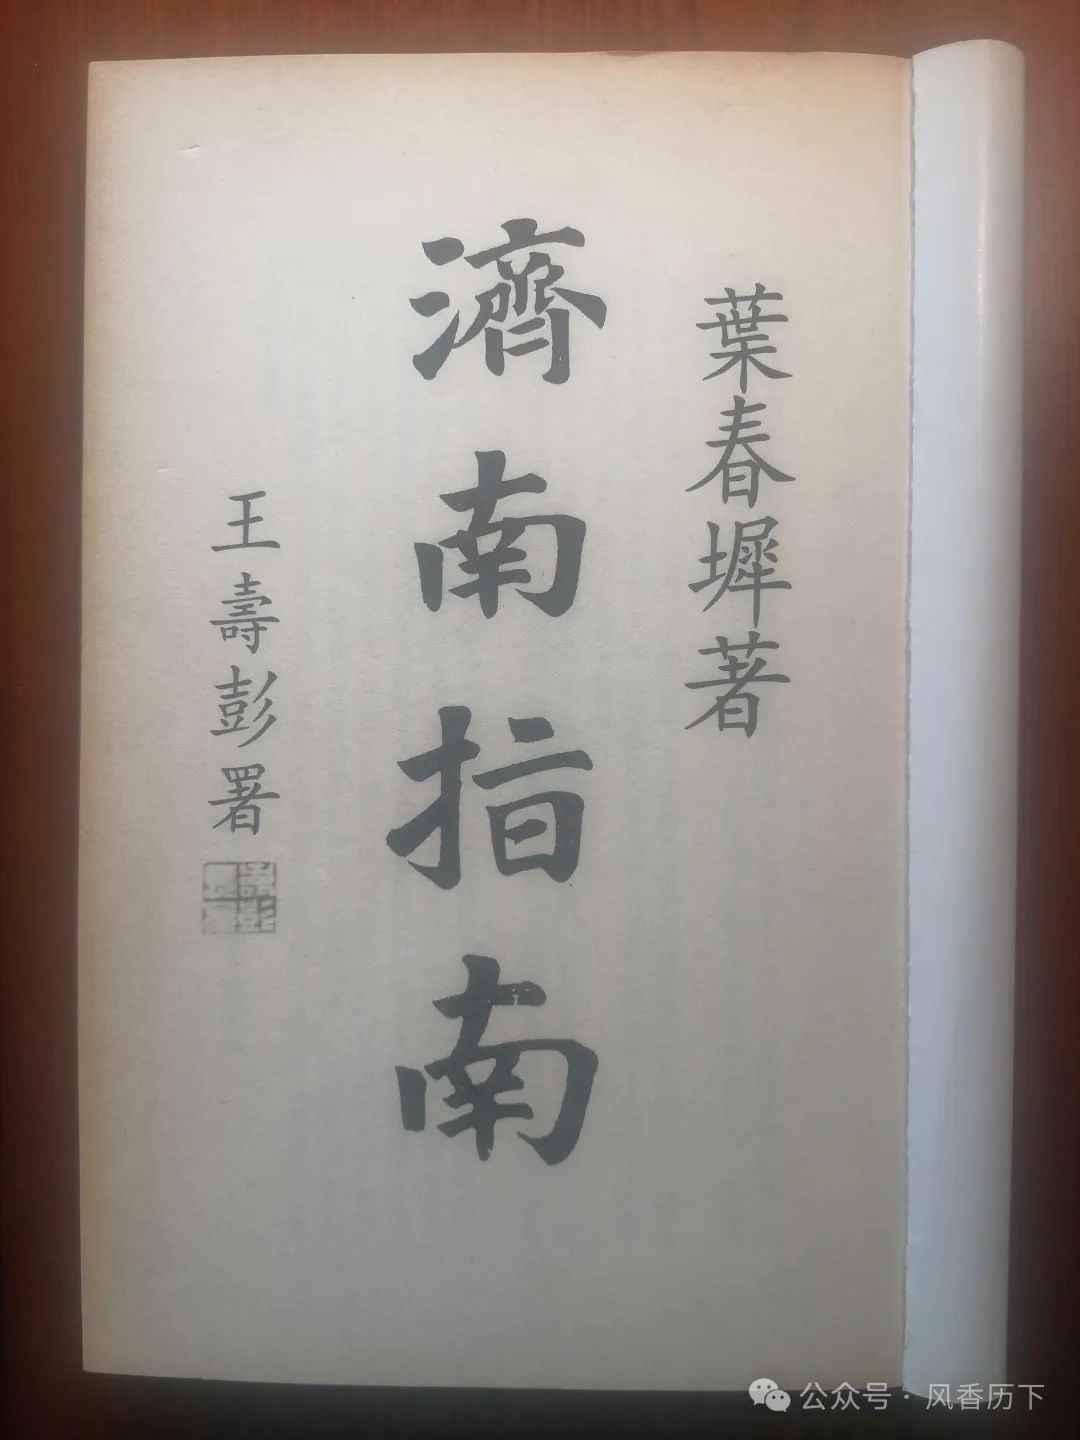 葉春墀著
濟南指南
王壽彭署
公众号 · 风香历下